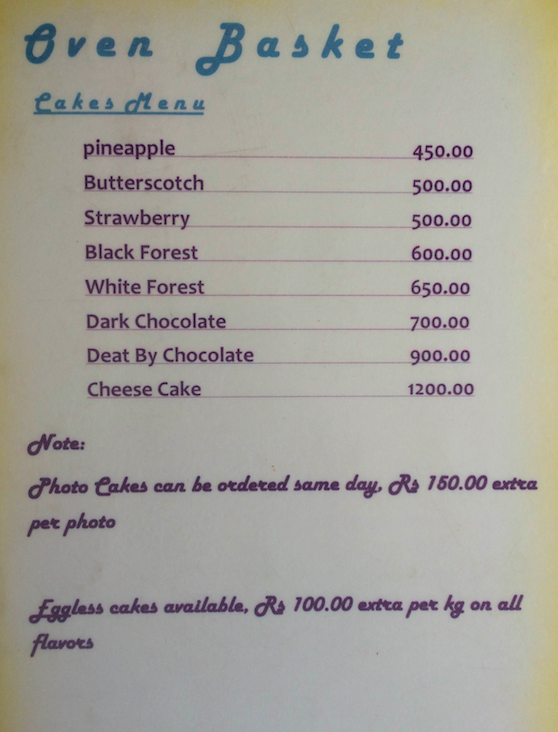 Oven Basket
Cakes Menu
pineapple 450.00
Butterscotch 500.00
Strawberry 500.00
Black Forest 600.00
White Forest 650.00
Dark Chocolate 700.00
Deat By Chocolate 900.00
Cheese Cake 1200.00
Note:
Photo Cakes can be ordered same day, Rs 150.00 extra
per photo
Eggless cakes available, Rs 100.00 extra per kg on all
flavors